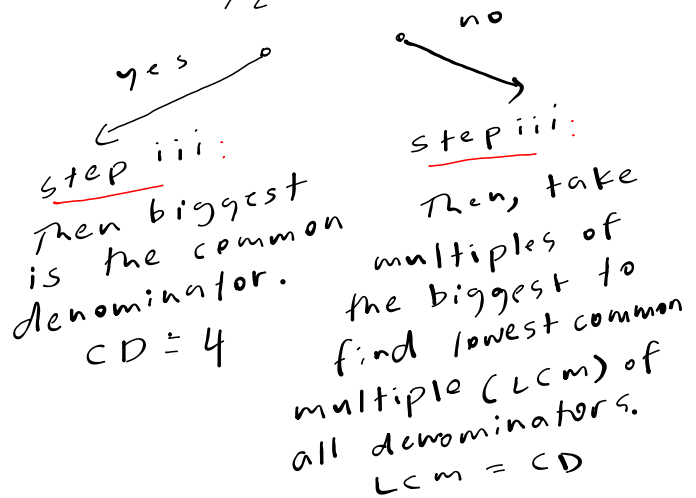 yes
no
step iii:
Then biggest
is the common
denominator.
CD = 4
step iii:
Then, take
multiples of
the biggest to
find lowest common
multiple (LCM) of
all denominators.
LCM = CD